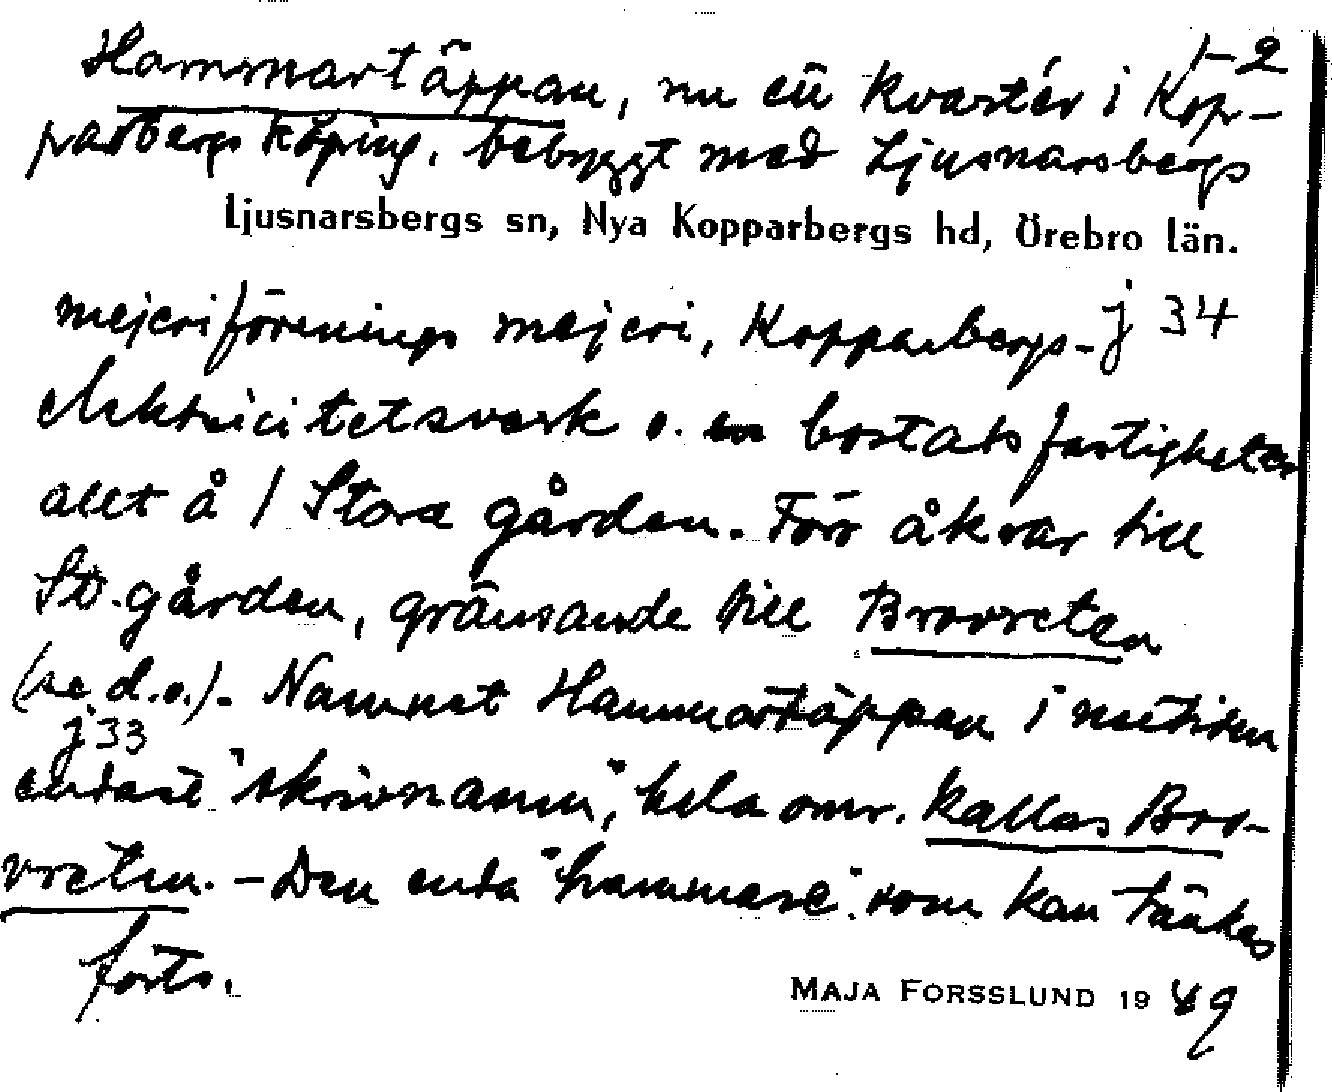 1-2
Hammartäppan, nu ett kvarter i Kop-
parbergs köping, bebyggt med Ljusnarsbergs
Ljusnarsbergs sn, Nya Kopparbergs hd, Örebro län.
mejeriförenings mejeri, Kopparbergs- j 34
elektricitetsverk o. bostadsfastigheter
allt å / Stora gården. Förr åkrar till
St. gården, gränsande till Brovreten
(se d.o.). Namnet Hammartäppan i
j 33
endast "skrivnamn", hela omr. kallas Bro-
vreten. – Den enda "hammare" som kan tänkas
forts.
MAJA FORSSLUND 19 49